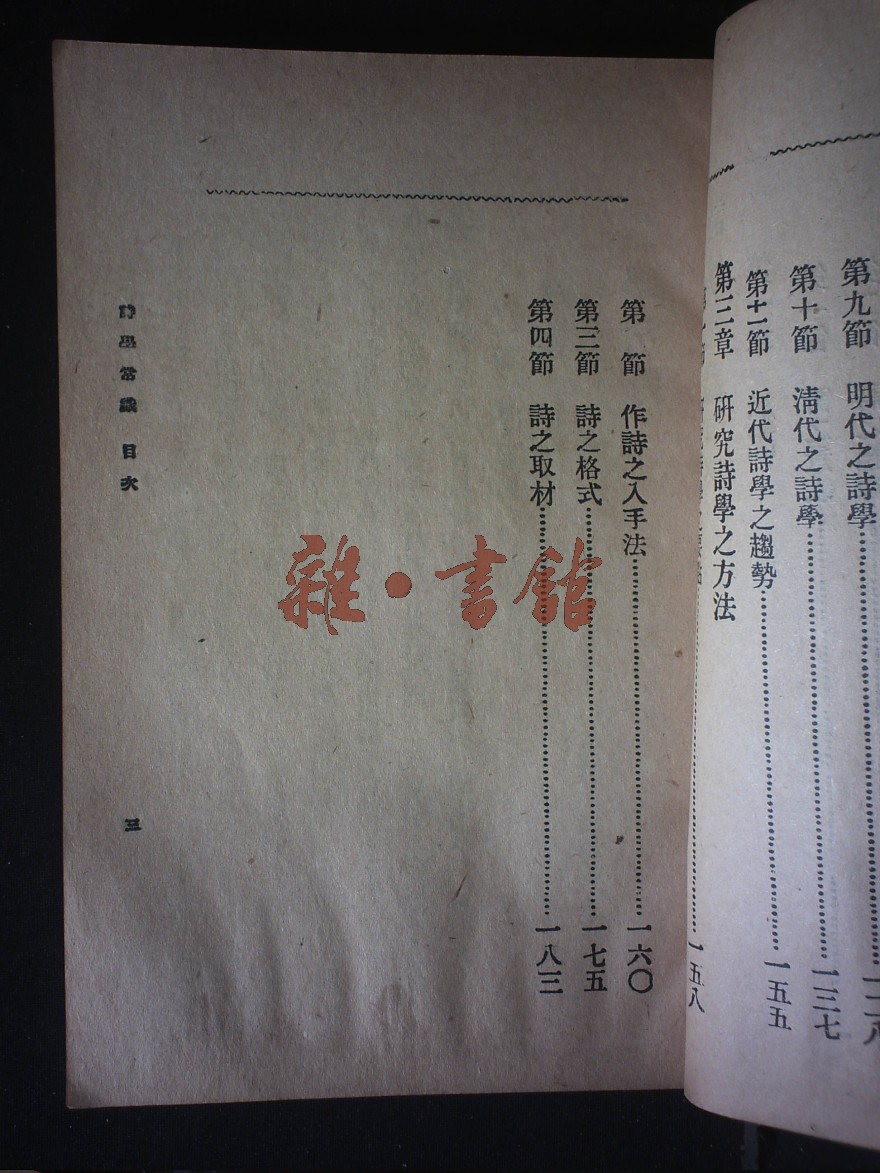 第九節 明代之詩學
第十節 清代之詩學 一三七
第十一節 近代詩學之趨勢 一五五
第三章 研究詩學之方法
一五八
第 節 作詩之入手法 一六〇
第三節 詩之格式 一七五
第四節 詩之取材 一八三
詩學常識 目次
三
雜·書館